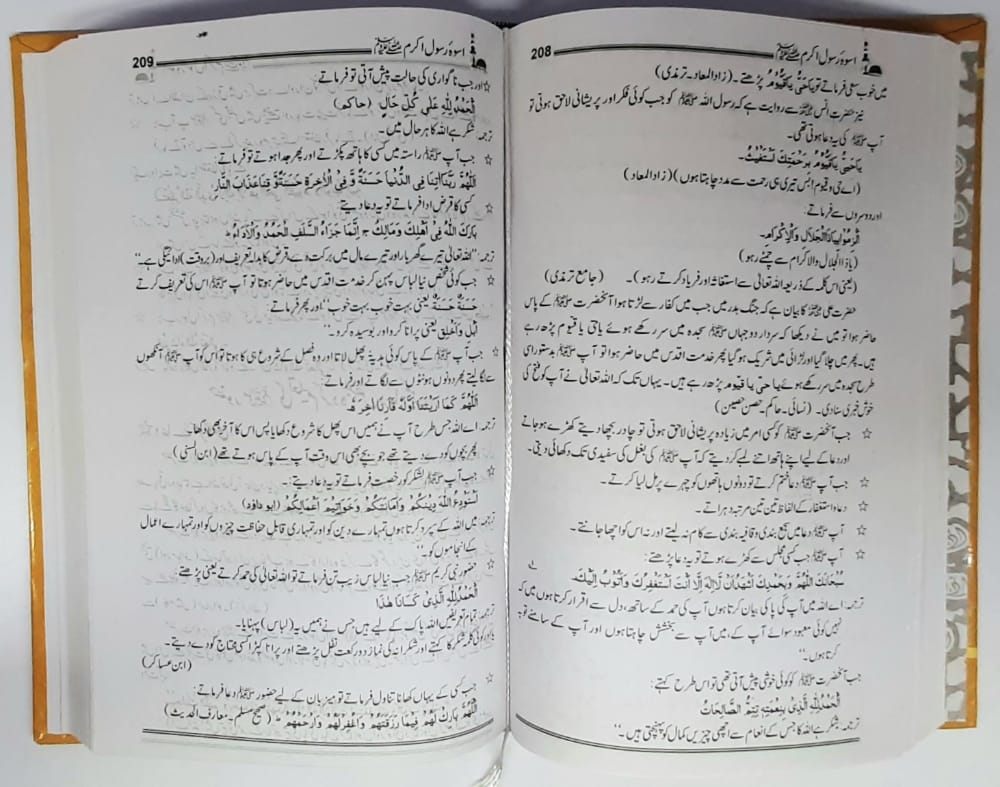 208
اسوۂ رسول اکرم ﷺ
میں خوب سعی فرماتے تو یَاحَیُّ یَاقَیُّوْمُ پڑھتے۔ (زاد المعاد۔ ترمذی)
نیز حضرت انسؓ سے روایت ہے کہ رسول اللہ ﷺ کو جب کوئی فکر اور پریشانی لاحق ہوتی تو
آپ ﷺ کی یہ دعا ہوتی تھی۔
یَاحَیُّ یَاقَیُّوْمُ بِرَحْمَتِكَ اَسْتَغِیْثُ۔
(اے حی و قیوم! بس تیری ہی رحمت سے مدد چاہتا ہوں) (زاد المعاد)
اور دوسروں سے فرماتے:
اَلِظُّوْا بِیَاذَا الْجَلَالِ وَالْاِکْرَامِ۔
(یا ذا الجلال والاکرام سے چمٹے رہو)
(یعنی اس کلمہ کے ذریعہ اللہ تعالیٰ سے استغاثہ اور فریاد کرتے رہو)۔ (جامع ترمذی)
حضرت علیؓ کا بیان ہے کہ جنگ بدر میں جب میں کفار سے لڑتا ہوا آنحضرت ﷺ کے پاس
حاضر ہوا تو میں نے دیکھا کہ سردار دو جہاں ﷺ سجدہ میں سر رکھے ہوئے یا حَیُّ یا قیوم پڑھ رہے
ہیں۔ پھر میں چلا گیا اور لڑائی میں شریک ہو گیا پھر خدمت اقدس میں حاضر ہوا تو آپ ﷺ بدستور اسی
طرح سجدہ میں سر رکھے ہوئے یا حَیُّ یا قیوم پڑھ رہے ہیں۔ یہاں تک کہ اللہ تعالیٰ نے آپ کو فتح کی
خوش خبری سنا دی۔ (نسائی۔ حاکم۔ حصن حصین)
☆ جب آنحضرت ﷺ کو کسی امر میں زیادہ پریشانی لاحق ہوتی تو چادر بچھا دیتے کھڑے ہو جاتے
اور دعا کے لیے اپنے ہاتھ اتنے لمبے کر دیتے کہ آپ ﷺ کی بغل کی سفیدی تک دکھائی دیتی۔
☆ جب آپ ﷺ دعا ختم کرتے تو دونوں ہاتھوں کو چہرے پر مل لیا کرتے۔
☆ دعا و استغفار کے الفاظ تین تین مرتبہ دہراتے۔
☆ آپ ﷺ دعا میں سجع بندی و قافیہ بندی سے کام نہ لیتے اور نہ اس کو اچھا جانتے۔
☆ آپ ﷺ جب کسی مجلس سے کھڑے ہوتے تو یہ دعا پڑھتے:
سُبْحَانَكَ اللّٰهُمَّ وَبِحَمْدِكَ اَشْهَدُ اَنْ لَّا اِلٰهَ اِلَّا اَنْتَ اَسْتَغْفِرُكَ وَاَتُوْبُ اِلَیْكَ۔
ترجمہ: اے اللہ میں آپ کی پاکی بیان کرتا ہوں آپ کی حمد کے ساتھ، دل سے اقرار کرتا ہوں میں کہ
نہیں کوئی معبود سوائے آپ کے، میں آپ سے بخشش چاہتا ہوں اور آپ کے سامنے توبہ
کرتا ہوں۔‘‘
جب آنحضرت ﷺ کو کوئی خوشی پیش آتی تھی تو اس طرح کہتے:
اَلْحَمْدُ لِلّٰهِ الَّذِیْ بِنِعْمَتِهٖ تَتِمُّ الصَّالِحَاتُ
ترجمہ: شکر ہے اللہ کا جس کے انعام سے اچھی چیزیں کمال کو پہنچتی ہیں۔‘‘
209
اسوۂ رسول اکرم ﷺ
☆ اور جب ناگواری کی حالت پیش آتی تو فرماتے
اَلْحَمْدُ لِلّٰهِ عَلٰی کُلِّ حَالٍ (حاکم)
ترجمہ: شکر ہے اللہ کا ہر حال میں۔
☆ جب آپ ﷺ راستہ میں کسی کا ہاتھ پکڑتے اور پھر جدا ہوتے تو فرماتے:
اَللّٰهُمَّ رَبَّنَا اٰتِنَا فِی الدُّنْیَا حَسَنَةً وَّ فِی الْاٰخِرَةِ حَسَنَةً وَّقِنَا عَذَابَ النَّارِ
☆ کسی کا قرض ادا فرماتے تو یہ دعا دیتے:
بَارَكَ اللّٰهُ فِیْ اَهْلِكَ وَمَالِكَ ؕ اِنَّمَا جَزَاءُ السَّلَفِ الْحَمْدُ وَالْاَدَاءُ ؕ
ترجمہ: ’’اللہ تعالیٰ تیرے گھر بار اور تیرے مال میں برکت دے، قرض کا بدلہ تعریف اور (بروقت) ادائیگی ہے۔‘‘
☆ جب کوئی شخص نیا لباس پہن کر خدمت اقدس میں حاضر ہوتا تو آپ ﷺ اس کی تعریف کرتے
حَسَنَةٌ حَسَنَةٌ یعنی بہت خوب بہت خوب‘‘ اور پھر فرماتے:
اَبْلِ وَاَخْلِقْ یعنی پرانا کرو اور بوسیدہ کرو۔‘‘
☆ جب آپ ﷺ کے پاس کوئی ہدیۃً پھل لاتا اور وہ فصل کے شروع ہی کا ہوتا تو اس کو آپ آنکھوں
سے لگا لیتے پھر دونوں ہونٹوں سے لگاتے اور فرماتے:
اَللّٰهُمَّ کَمَا اَرَیْتَنَا اَوَّلَهٗ فَاَرِنَا اٰخِرَهٗ ؕ
ترجمہ: اے اللہ جس طرح آپ نے ہمیں اس پھل کا شروع دکھایا پس اس کا آخر بھی دکھا۔
پھر بچوں کو دے دیتے تھے جو بچے بھی اس وقت آپ کے پاس ہوتے تھے (ابن السنی)
☆ جب آپ ﷺ لشکر کو رخصت فرماتے تو یہ دعا دیتے:
اَسْتَوْدِعُ اللّٰهَ دِیْنَکُمْ وَ اَمَانَتَکُمْ وَخَوَاتِیْمَ اَعْمَالِکُمْ (ابو داؤد)
ترجمہ: میں اللہ کے سپرد کرتا ہوں تمہارے دین کو اور تمہاری قابل حفاظت چیزوں کو اور تمہارے اعمال
کے انجاموں کو۔‘‘
☆ حضور نبی کریم ﷺ جب نیا لباس زیب تن فرماتے تو اللہ تعالیٰ کی حمد کرتے یعنی پڑھتے
اَلْحَمْدُ لِلّٰهِ الَّذِیْ کَسَانَا هٰذَا
ترجمہ: تمام تعریفیں اللہ پاک کے لیے ہیں جس نے ہمیں یہ (لباس) پہنایا۔
یا اور کوئی کلمہ شکر کا کہتے اور شکرانہ کی نماز دو رکعت نفل پڑھتے اور پرانا کپڑا کسی محتاج کو دے دیتے۔
(ابن عساکر)
☆ جب کسی کے یہاں کھانا تناول فرماتے تو میزبان کے لیے حضور ﷺ دعا فرماتے:
اَللّٰهُمَّ بَارِكْ لَهُمْ فِیْمَا رَزَقْتَهُمْ وَاغْفِرْ لَهُمْ وَارْحَمْهُمْ ؕ (صحیح مسلم۔ معارف الحدیث)